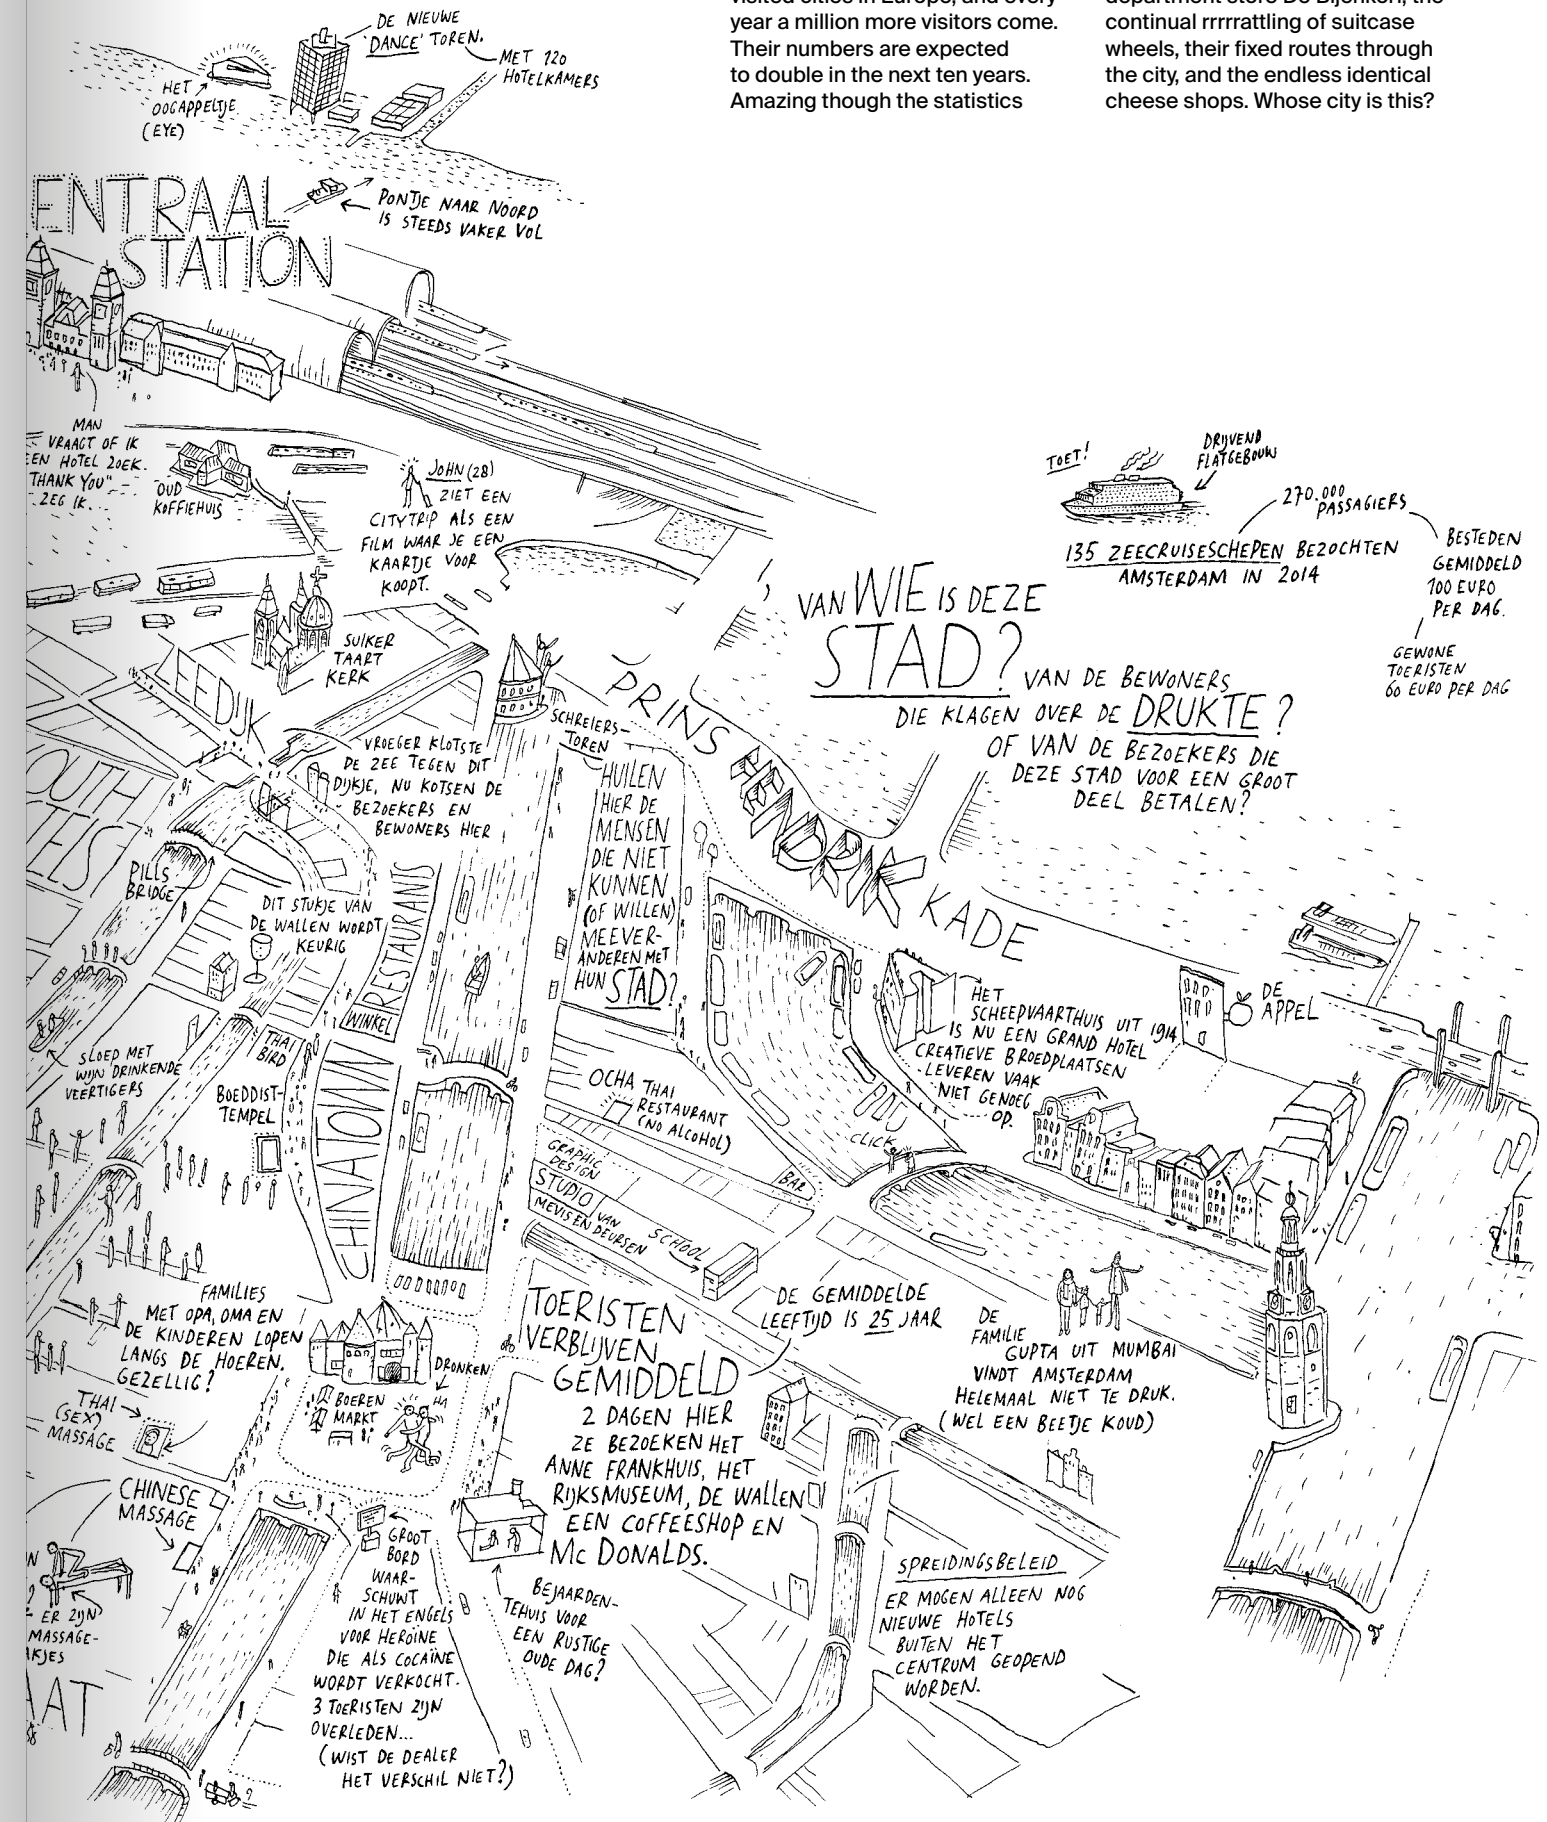 year a million more visitors come.
Their numbers are expected
to double in the next ten years.
Amazing though the statistics
continual rrrrrattling of suitcase
wheels, their fixed routes through
the city, and the endless identical
cheese shops. Whose city is this?
DE NIEUWE
'DANCE' TOREN.
MET 120
HOTELKAMERS
HET
OOGAPPELTJE
(EYE)
ENTRAAL
STATION
PONTJE NAAR NOORD
IS STEEDS VAKER VOL
MAN
VRAAGT OF IK
EEN HOTEL ZOEK.
THANK YOU"
ZEG IK...
OUD
KOFFIEHUIS
JOHN (28)
ZIET EEN
CITYTRIP ALS EEN
FILM WAAR JE EEN
KAARTJE VOOR
KOOPT.
TOET!
DRIJVEND
FLATGEBOUW
270.000
PASSAGIERS
135 ZEECRUISESCHEPEN BEZOCHTEN
AMSTERDAM IN 2014
BESTEDEN
GEMIDDELD
100 EURO
PER DAG.
GEWONE
TOERISTEN
60 EURO PER DAG
VAN WIE IS DEZE
STAD?
VAN DE BEWONERS
DIE KLAGEN OVER DE DRUKTE?
OF VAN DE BEZOEKERS DIE
DEZE STAD VOOR EEN GROOT
DEEL BETALEN?
SUIKER
TAART
KERK
ZEEDIJK
SCHREIERS-
TOREN
PRINS HENDRIK KADE
VROEGER KLOTSTE
DE ZEE TEGEN DIT
DIJKJE, NU KOTSEN DE
BEZOEKERS EN
BEWONERS HIER
HUILEN
HIER DE
MENSEN
DIE NIET
KUNNEN
(OF WILLEN)
MEEVER-
ANDEREN MET
HUN STAD?
OUTH
TELS
PILLS
BRIDGE
DIT STUKJE VAN
DE WALLEN WORDT
KEURIG
RESTAURANTS
WINKEL
THAI
BIRD
CHINATOWN
SLOEP MET
WIJN DRINKENDE
VEERTIGERS
BOEDDIST-
TEMPEL
HET
SCHEEPVAARTHUIS UIT 1914
IS NU EEN GRAND HOTEL
CREATIEVE BROEDPLAATSEN
LEVEREN VAAK
NIET GENOEG
OP.
DE
APPEL
OCHA THAI
RESTAURANT
(NO ALCOHOL)
CLICK
BAR
GRAPHIC
DESIGN
STUDIO VAN
MEVIS EN DEURSEN
SCHOOL
FAMILIES
MET OPA, OMA EN
DE KINDEREN LOPEN
LANGS DE HOEREN.
GEZELLIG?
THAI
(SEX)
MASSAGE
DRONKEN
HA
BOEREN
MARKT
TOERISTEN
VERBLIJVEN
GEMIDDELD
2 DAGEN HIER
ZE BEZOEKEN HET
ANNE FRANKHUIS, HET
RIJKSMUSEUM, DE WALLEN
EEN COFFEESHOP EN
MC DONALDS.
DE GEMIDDELDE
LEEFTIJD IS 25 JAAR
DE
FAMILIE
GUPTA UIT MUMBAI
VINDT AMSTERDAM
HELEMAAL NIET TE DRUK.
(WEL EEN BEETJE KOUD)
CHINESE
MASSAGE
ER ZIJN
MASSAGE-
GROOT
BORD
WAAR-
SCHUWT
IN HET ENGELS
VOOR HEROÏNE
DIE ALS COCAÏNE
WORDT VERKOCHT.
3 TOERISTEN ZIJN
OVERLEDEN...
(WIST DE DEALER
HET VERSCHIL NIET?)
BEJAARDEN-
TEHUIS VOOR
EEN RUSTIGE
OUDE DAG?
SPREIDINGSBELEID
ER MOGEN ALLEEN NOG
NIEUWE HOTELS
BUITEN HET
CENTRUM GEOPEND
WORDEN.
AAT